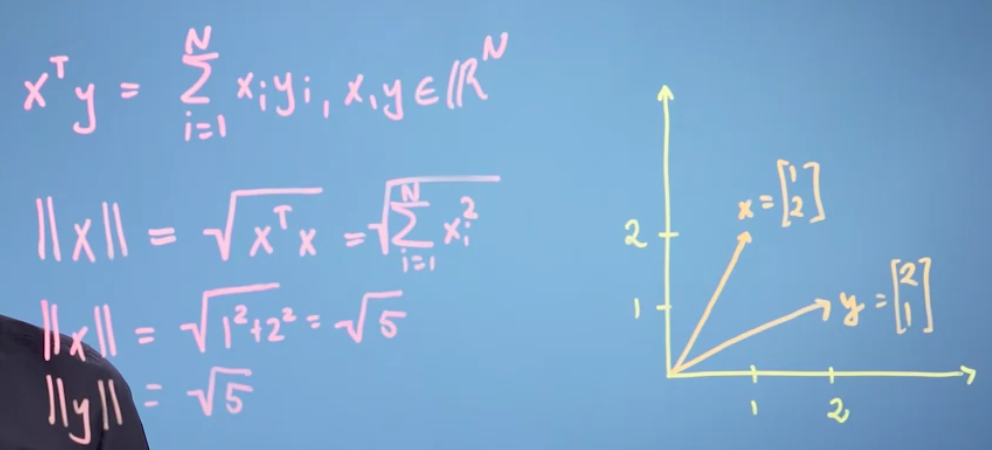 xᵀy = ∑ᵢ₌₁ᴺ xᵢyᵢ, x,y ∈ ℝᴺ
||x|| = √(xᵀx) = √(∑ᵢ₌₁ᴺ xᵢ²)
||x|| = √(1²+2²) = √5
||y|| = √5
x = [1 2]
2
y = [2 1]
1
1 2